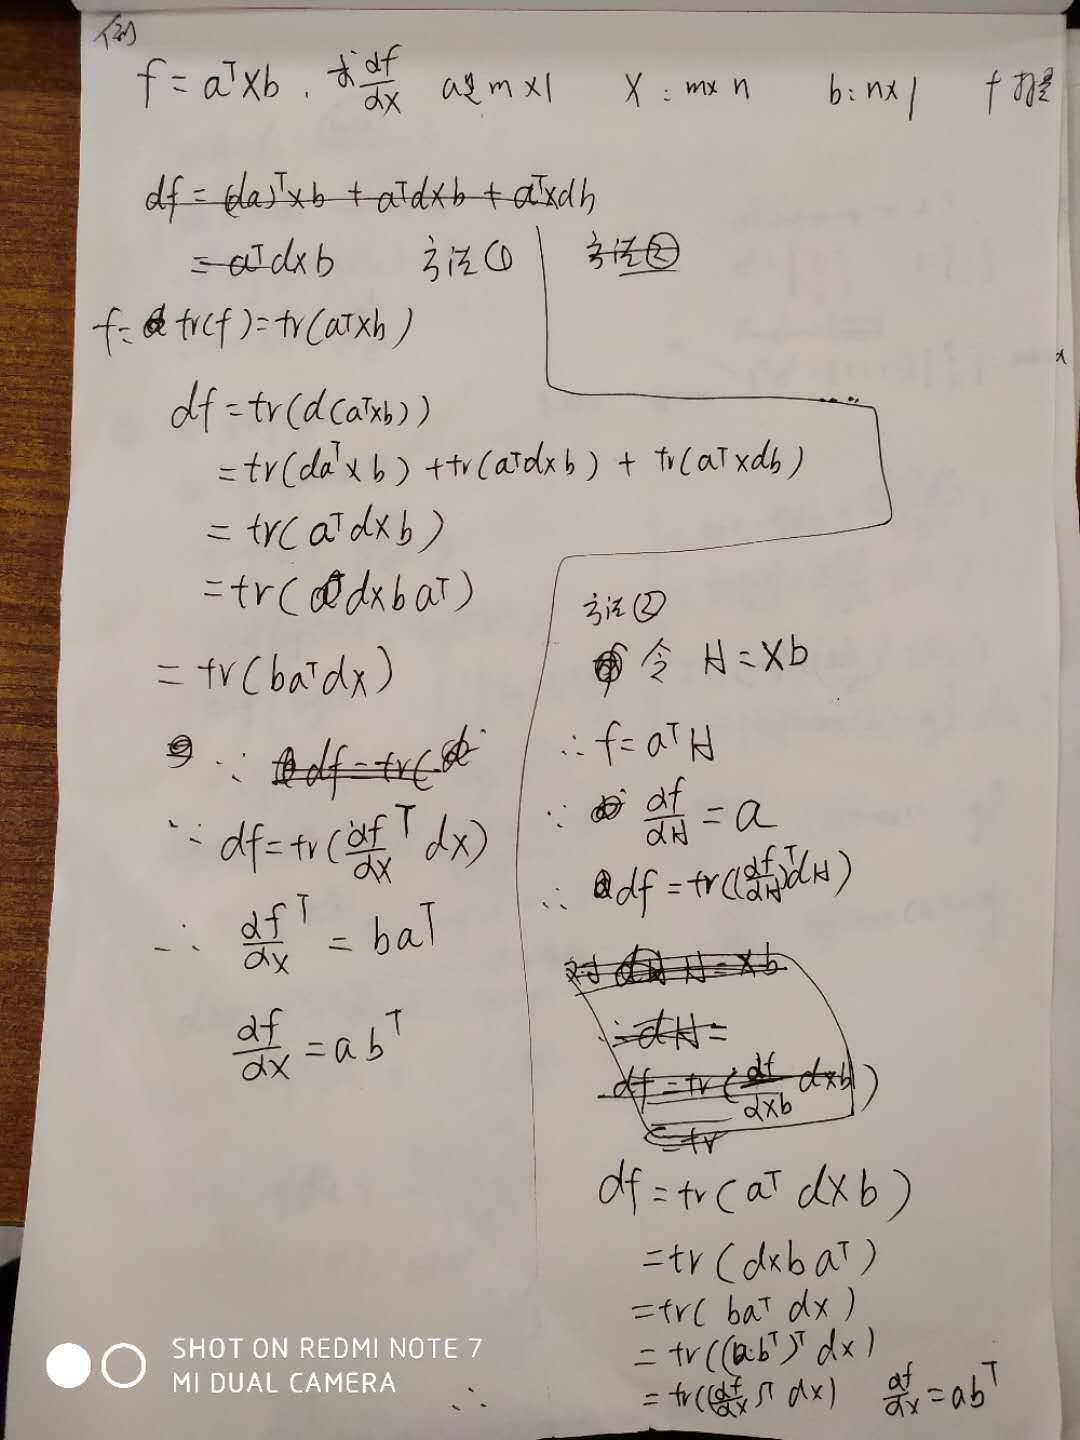 例
f = aᵀXb . 求 df/dX a是m×1 X : m×n b : n×1 f 标量
df = (da)ᵀXb + aᵀdXb + aᵀXdb
= aᵀdXb 方法①
f = tr(f) = tr(aᵀXb)
df = tr(d(aᵀXb))
= tr(daᵀXb) + tr(aᵀdXb) + tr(aᵀXdb)
= tr(aᵀdXb)
= tr(dXbaᵀ)
= tr(baᵀdX)
∵ df = tr(
∵ df = tr(∂f/∂Xᵀ dX)
∴ ∂f/∂Xᵀ = baᵀ
∂f/∂X = abᵀ
方法②
方法②
令 H = Xb
∴ f = aᵀH
∵ ∂f/∂H = a
∴ df = tr((∂f/∂H)ᵀdH)
对 H = Xb
∴ dH =
df = tr(∂f/∂Xb dXb)
= tr
df = tr(aᵀ dXb)
= tr(dXbaᵀ)
= tr(baᵀ dX)
= tr((abᵀ)ᵀ dX)
∴ = tr((∂f/∂X)ᵀ dX) ∂f/∂X = abᵀ
SHOT ON REDMI NOTE 7
MI DUAL CAMERA